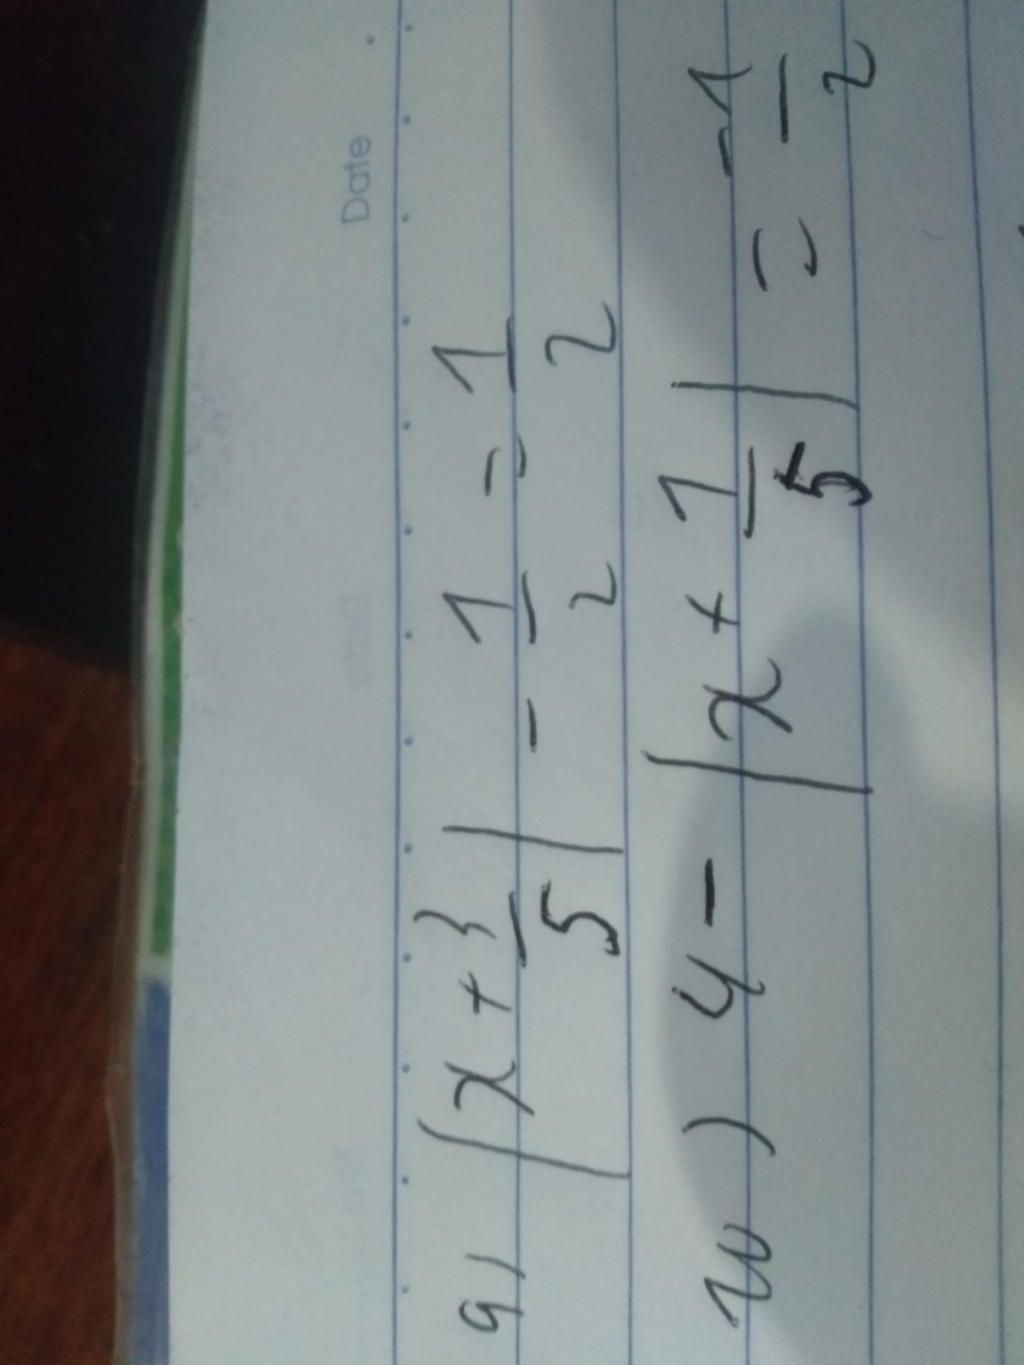 Date
9) |x + 3/5| - 1/2 = 1/2
10) 4 - |x + 1/5| = -1/2